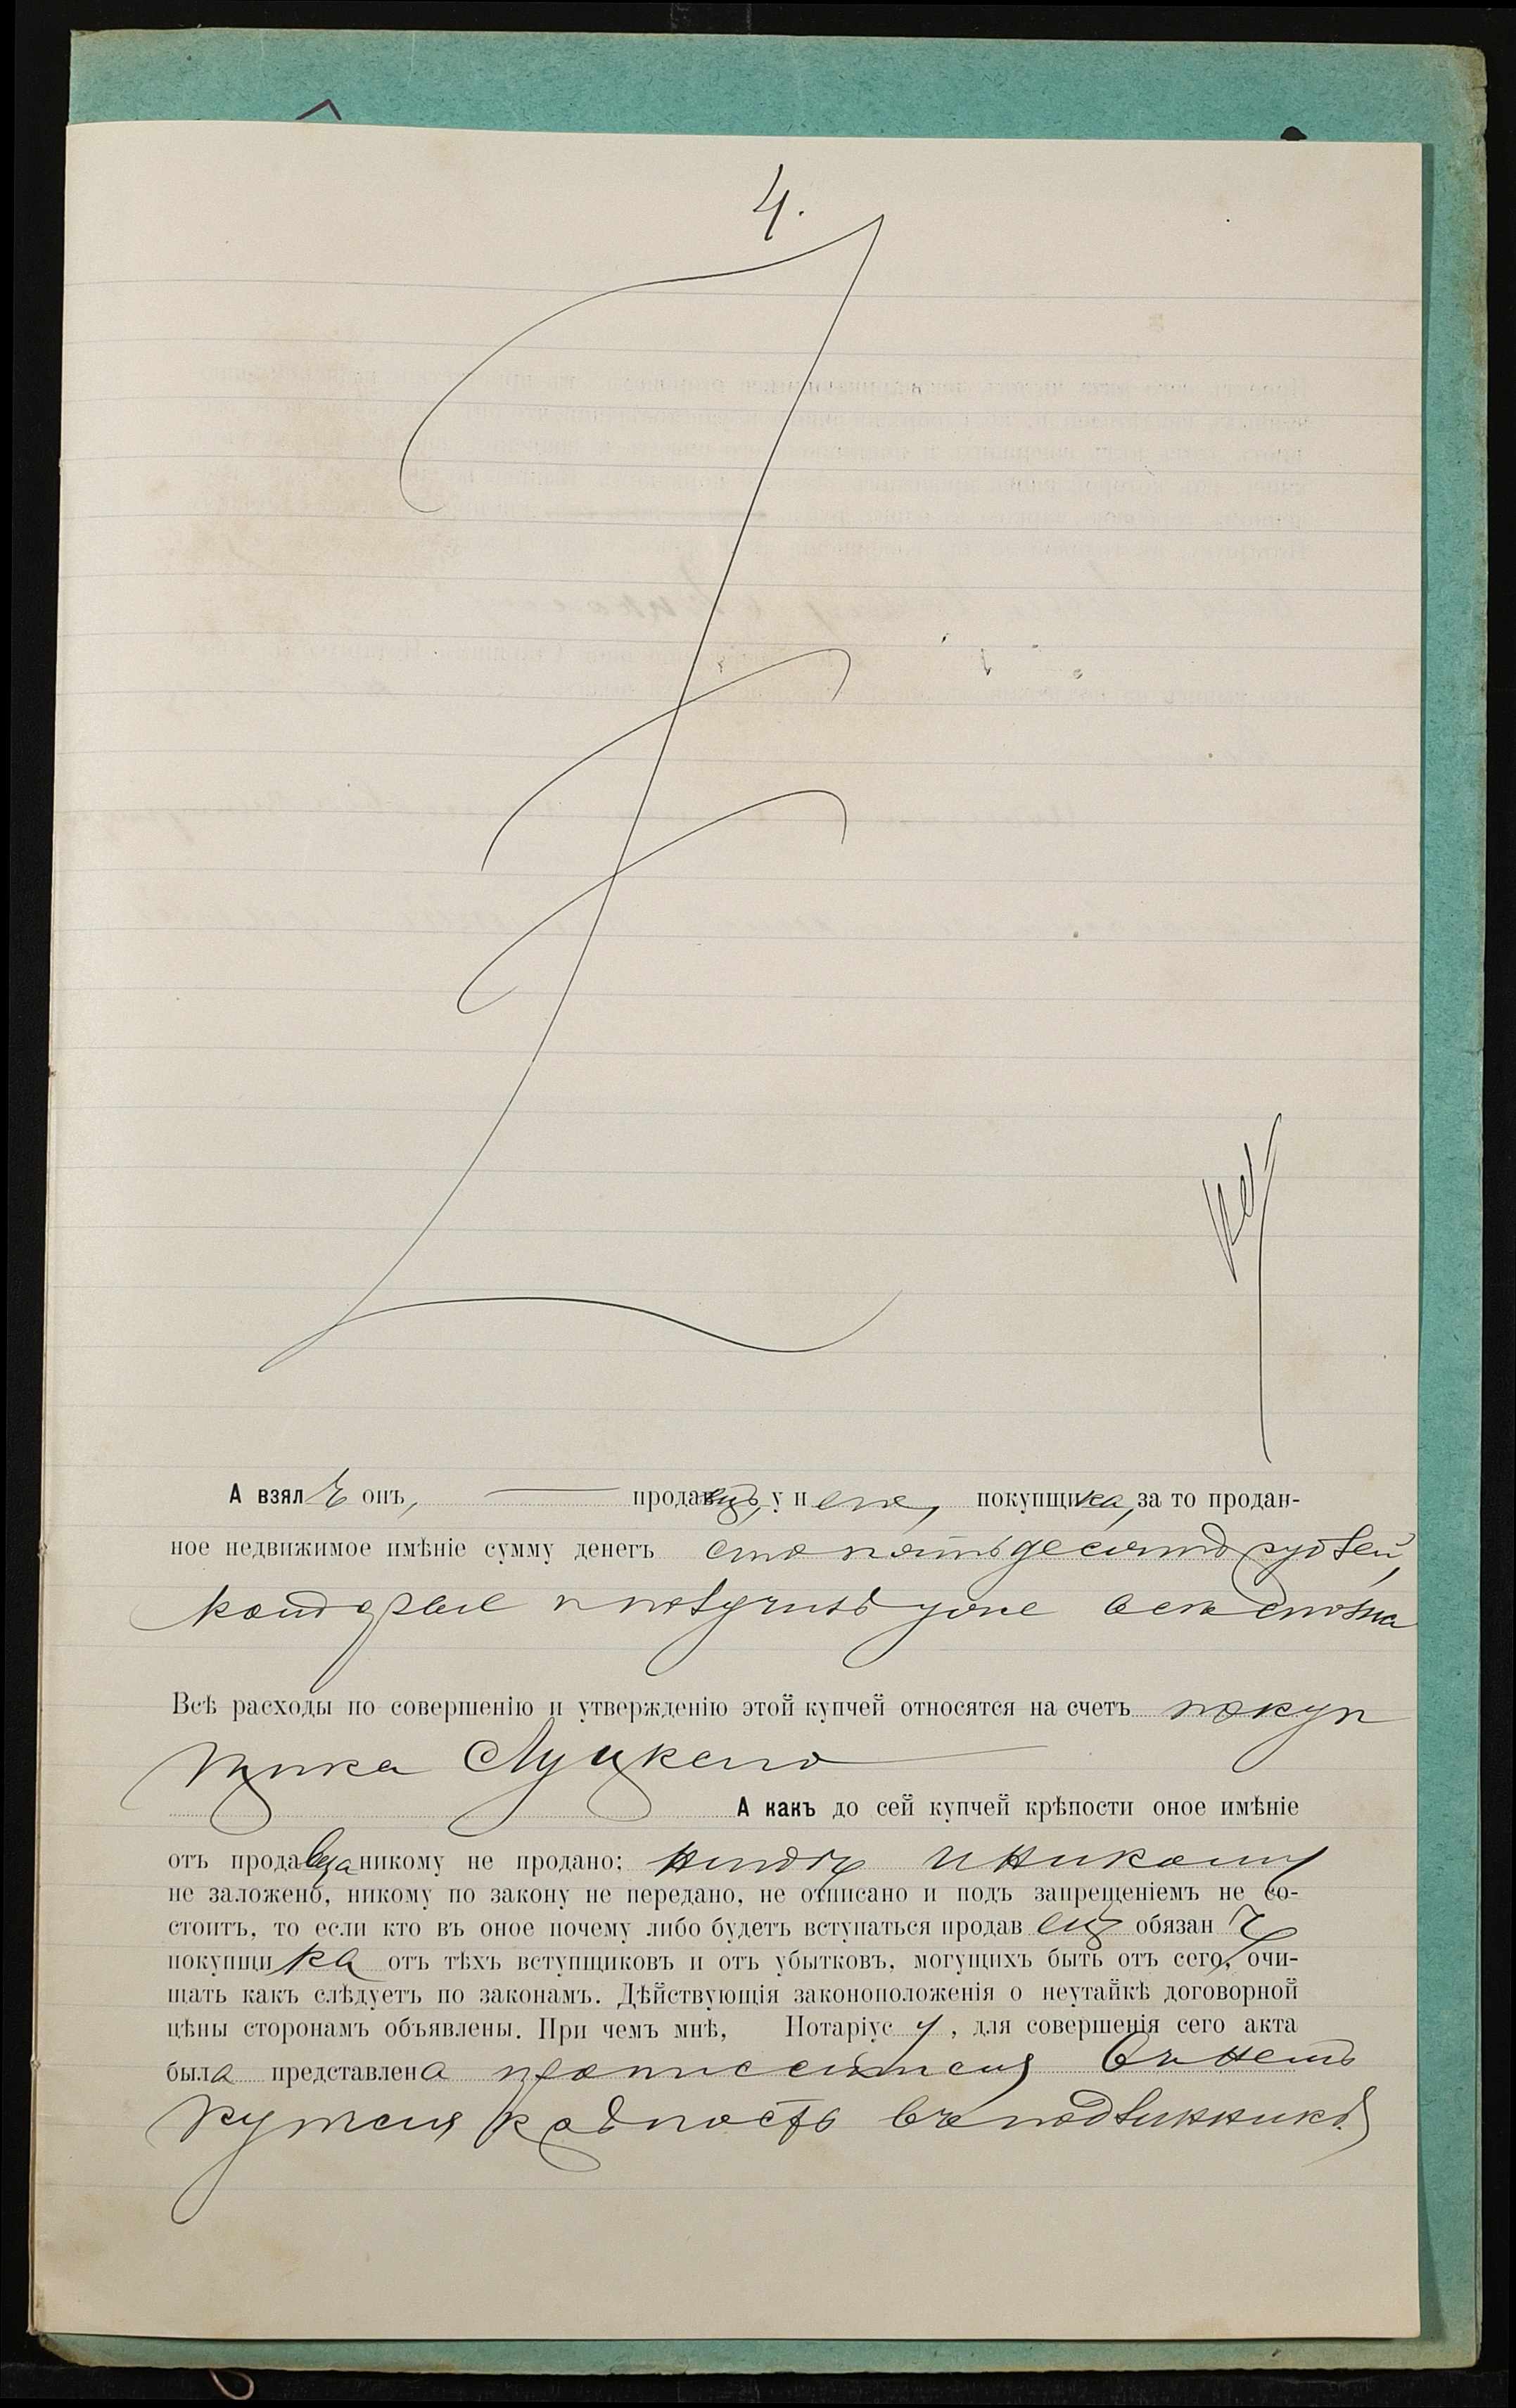 4.
А взялъ онъ, продавецъ, у него, покупщика, за то продан-
ное недвижимое имѣніе сумму денегъ сто пятьдесятъ рублей,
которые и получилъ уже всѣ сполна
Всѣ расходы по совершенію и утвержденію этой купчей относятся на счетъ покуп
щика Луцкаго
А какъ до сей купчей крѣпости оное имѣніе
отъ продавца никому не продано; нигдѣ и никому
не заложено, никому по закону не передано, не отписано и подъ запрещеніемъ не со-
стоитъ, то если кто въ оное почему либо будетъ вступаться продавецъ обязанъ
покупщика отъ тѣхъ вступщиковъ и отъ убытковъ, могущихъ быть отъ сего, очи-
щать какъ слѣдуетъ по законамъ. Дѣйствующія законоположенія о неутайкѣ договорной
цѣны сторонамъ объявлены. При чемъ мнѣ, Нотаріусу, для совершенія сего акта
была представлена прописанная въ немъ
купчая крѣпость въ подлинникѣ